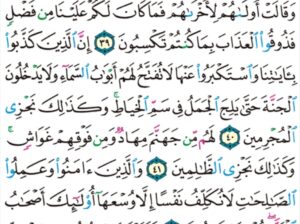 وَقَالَتْ أُولَىٰهُمْ لِأُخْرَىٰهُمْ فَمَا كَانَ لَكُمْ عَلَيْنَا مِن فَضْلٍ
فَذُوقُوا۟ ٱلْعَذَابَ بِمَا كُنتُمْ تَكْسِبُونَ ٣٩ إِنَّ ٱلَّذِينَ كَذَّبُوا۟
بِـَٔايَـٰتِنَا وَٱسْتَكْبَرُوا۟ عَنْهَا لَا تُفَتَّحُ لَهُمْ أَبْوَٰبُ ٱلسَّمَآءِ وَلَا يَدْخُلُونَ
ٱلْجَنَّةَ حَتَّىٰ يَلِجَ ٱلْجَمَلُ فِى سَمِّ ٱلْخِيَاطِ ۚ وَكَذَٰلِكَ نَجْزِى
ٱلْمُجْرِمِينَ ٤٠ لَهُم مِّن جَهَنَّمَ مِهَادٌ وَمِن فَوْقِهِمْ غَوَاشٍ ۚ
وَكَذَٰلِكَ نَجْزِى ٱلظَّـٰلِمِينَ ٤١ وَٱلَّذِينَ ءَامَنُوا۟ وَعَمِلُوا۟
ٱلصَّـٰلِحَـٰتِ لَا نُكَلِّفُ نَفْسًا إِلَّا وُسْعَهَآ أُو۟لَـٰٓئِكَ أَصْحَـٰبُ